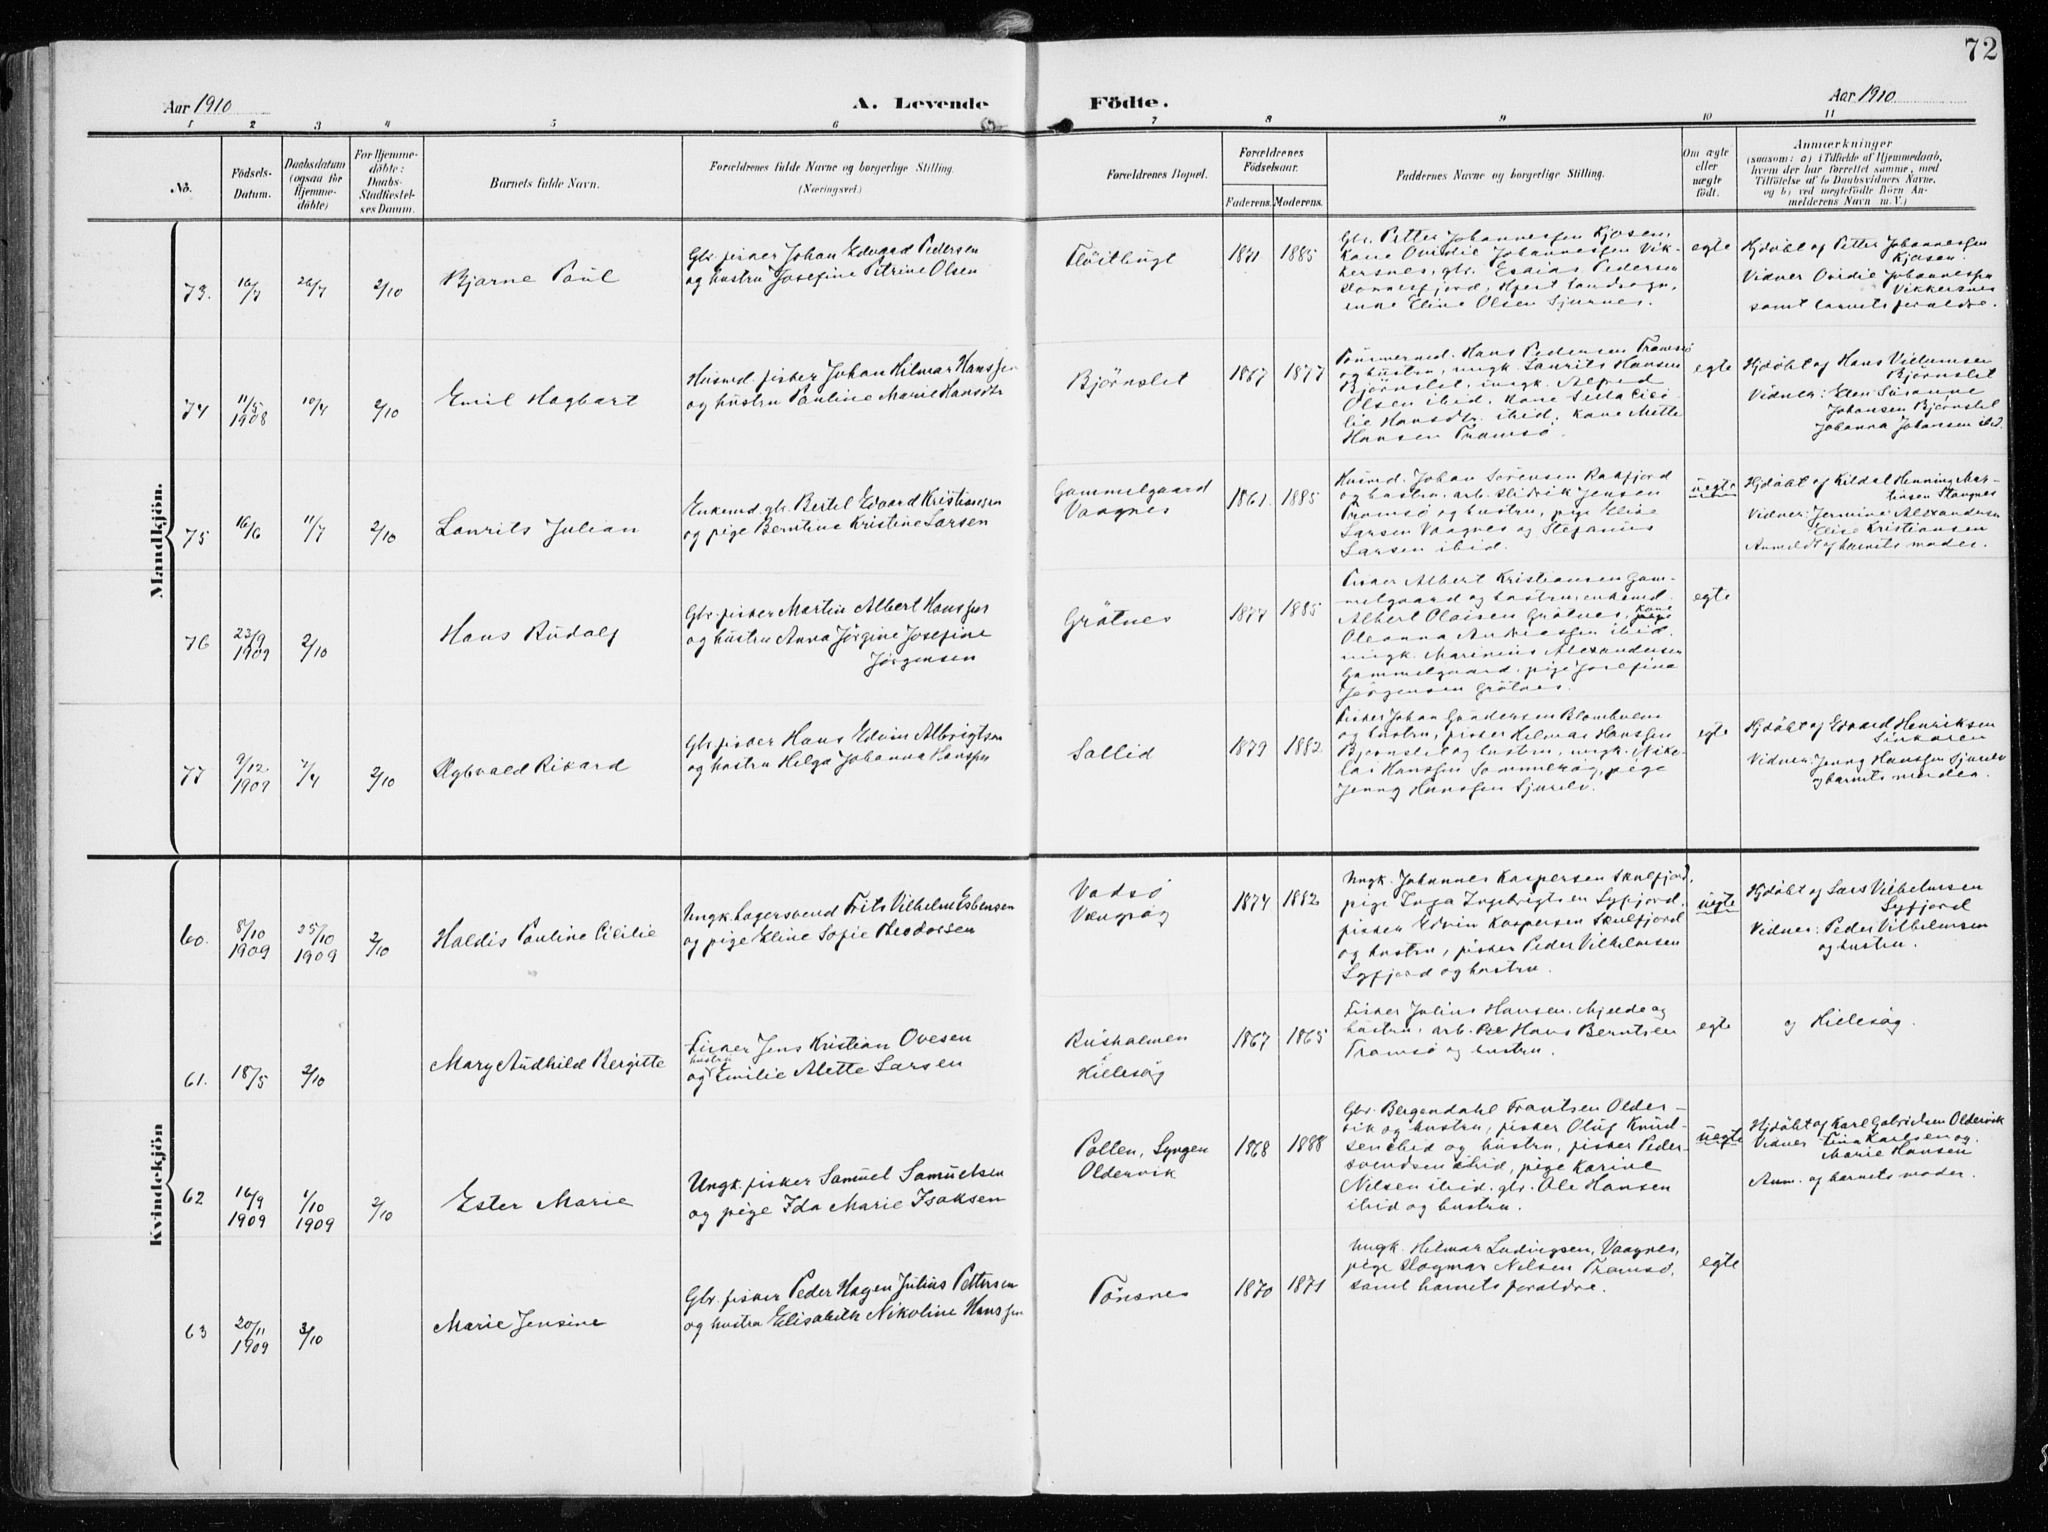 72
Aar 1910
A. Levende
Födte.
Aar 1910
1 2 3 4 5 6 7 8 9 10 11
No.
Födsels-
Datum.
Daabsdatum
(ogsaa for
Hjemme-
döbte)
For Hjemme-
döbte:
Daabs-
Stadfæstel-
ses Datum.
Barnets fulde Navn.
Forældrenes fulde Navne og borgerlige Stilling.
(Næringsvei.)
Forældrenes Bopæl.
Forældrenes
Födselsaar.
Faderens. Moderens.
Faddernes Navne og borgerlige Stilling.
Om ægte
eller
uægte
födt.
Anmærkninger
(saasom: a) i Tilfælde af Hjemmedaab,
hvem der har forrettet samme, med
Tilföielse af to Daabsvidners Navne,
og b) ved uegtefödte Börn An-
melderens Navn m. V.)
Mandkjön.
73. 16/7 26/7 2/10
Bjarne Paul
Gbr. fisker Johan Edvard Pedersen
og hustru Josefine Petrine Olsen
Fløitbugt
1871 1885
Gbr. Petter Johannessen Kjosen,
Kone Ovidie Johannessen Vik-
kersnes, gbr. Esaias Pedersen
enke Eline Olsen Sjurnes.
egte
Hjdøbt af Petter Johannessen
Kjosen.
Vidner Ovidie Johannessen
Vikkersnes
samt barnets forældre.
74 11/5
1908 10/7 2/10
Emil Hagbart
Husmd. fisker Johan Hilmar Hanssen
og hustru Pauline Marie Hansdtr
Bjørnslet
1867 1877
Tømmermd. Hans Pedersen Tromsø
og hustru, ungk. Laurits Hansen
Bjørnslet, ungk. Alfred
Olsen ibid. Kone
Hansdtr. ibid. Kone Mette
Hansen Tromsø
egte
Hjdøbt af Hans
Bjørnslet
Vidner: Ellen Susanne
Johansen Bjørnslet
Johanna Johansen ibd.
75 16/6 11/7 2/10
Laurits Julian
Enkemd. gbr. Bertel Edvard Kristiansen
og pige Berntine Kristine Larsen
Gammelgaard
Vaagnes
1861 1885
Husmd. Johan Sørensen Rakfjord
og hustru. arb. Hidrik Jensen
Tromsø og hustru, pige Elise
Larsen Vaagnes og Stefanus
Larsen ibid.
uegte
Hjdøbt af Kildal Henning Mar-
tinsen Stangnes
Vidner: Jermine Alexandersen
Elise Kristiansen
Anmeldt af barnets moder.
76 23/9
1909 2/10
Hans Rudolf
Gbr. fisker Martin Albert Hanssen
og hustru Anna Jørgine Josefine
Jørgensen
Grøtnes
1877 1885
Fisker Albert Kristiansen Gam-
melgaard og hustru, enkemd.
Albert Olaisen Grøtnes, kone
Oleanna Andreassen ibid.
ungk. Marinius Alexandersen
Gammelgaard, pige Josefine
Jørgensen Grøtnes.
egte
77 9/12
1909 7/4 2/10
Sigbvald Rikard
Gbr. fisker Hans Edvin Albrigtsen
og hustru Helga Johanna Hanssen
Sollid
1879 1882
Fisker Johan Gundersen
og hustru, fisker Hilmar Hanssen
Bjørnslet og hustru, ungk. Niko-
lai Hanssen Sommersæg, pige
Jenny Hanssen
egte
Hjdøbt af Edvard Henriksen
Vidner: Jenny Hanssen
og barnets
Kvindekjön
60. 8/10
1909 25/10
1909 2/10
Haldis Pauline Cicilie
Ungk. lagersvend Frits Vilhelm Esbensen
og pige Eline Sofie Theodorsen
Vadsø
Vængsøg
1874 1882
Ungk. Johannes Kaspersen Skulfjord,
pige Inga Ingebrigtsen Lyfjord,
fisker Edvin Kaspersen Skulfjord
og hustru, fisker Peder Vilhelmsen
Lyfjord og hustru.
uegte
Hjdøbt af Lars Vilhelmsen
Lyfjord
Vidner: Peder Vilhelmsen
og hustru.
61. 18/5 2/10
Mary Audhild Bergitte
Fisker Jens Kristian Ovesen
hustru
og Emilie Alette Larsen
Risholmen
i
Hillesøg
1867 1865
Fisker Julius Hansen Mjelde og
hustru, arb. Hans Berntsen
Tromsø og hustru.
egte
og Hillesøg.
62 16/9
1909 1/10
1909 2/10
Ester Marie
Ungk. fisker Samuel Samuelsen
og pige Ida Marie Isaksen
Pollen, Lyngen
Oldervik
1868 1888
Gbr. Bergendahl Frantsen Older-
vik og hustru, fisker Oluf Knud-
sen ibid og hustru, fisker Peder
Svendsen ibid, pige Karine
Nilsen ibid. gbr. Ole Hansen
ibid og hustru.
uegte
Hjdøbt af Karl Gabrielsen Oldervik
Vidner Tina Karlsen og
Marie Hansen
Anm. af barnets moder.
63 20/11
1909 3/10
Marie Jensine
Gbr. fisker Peder Hagen Julius Pettersen
og hustru Elisabeth Nikoline Hanssen
Tønsnes
1870 1871
Ungk. Hilmar Ludvigsen, Vaagnes,
pige Dagmar Nilsen Tromsø,
samt barnets forældre.
egte